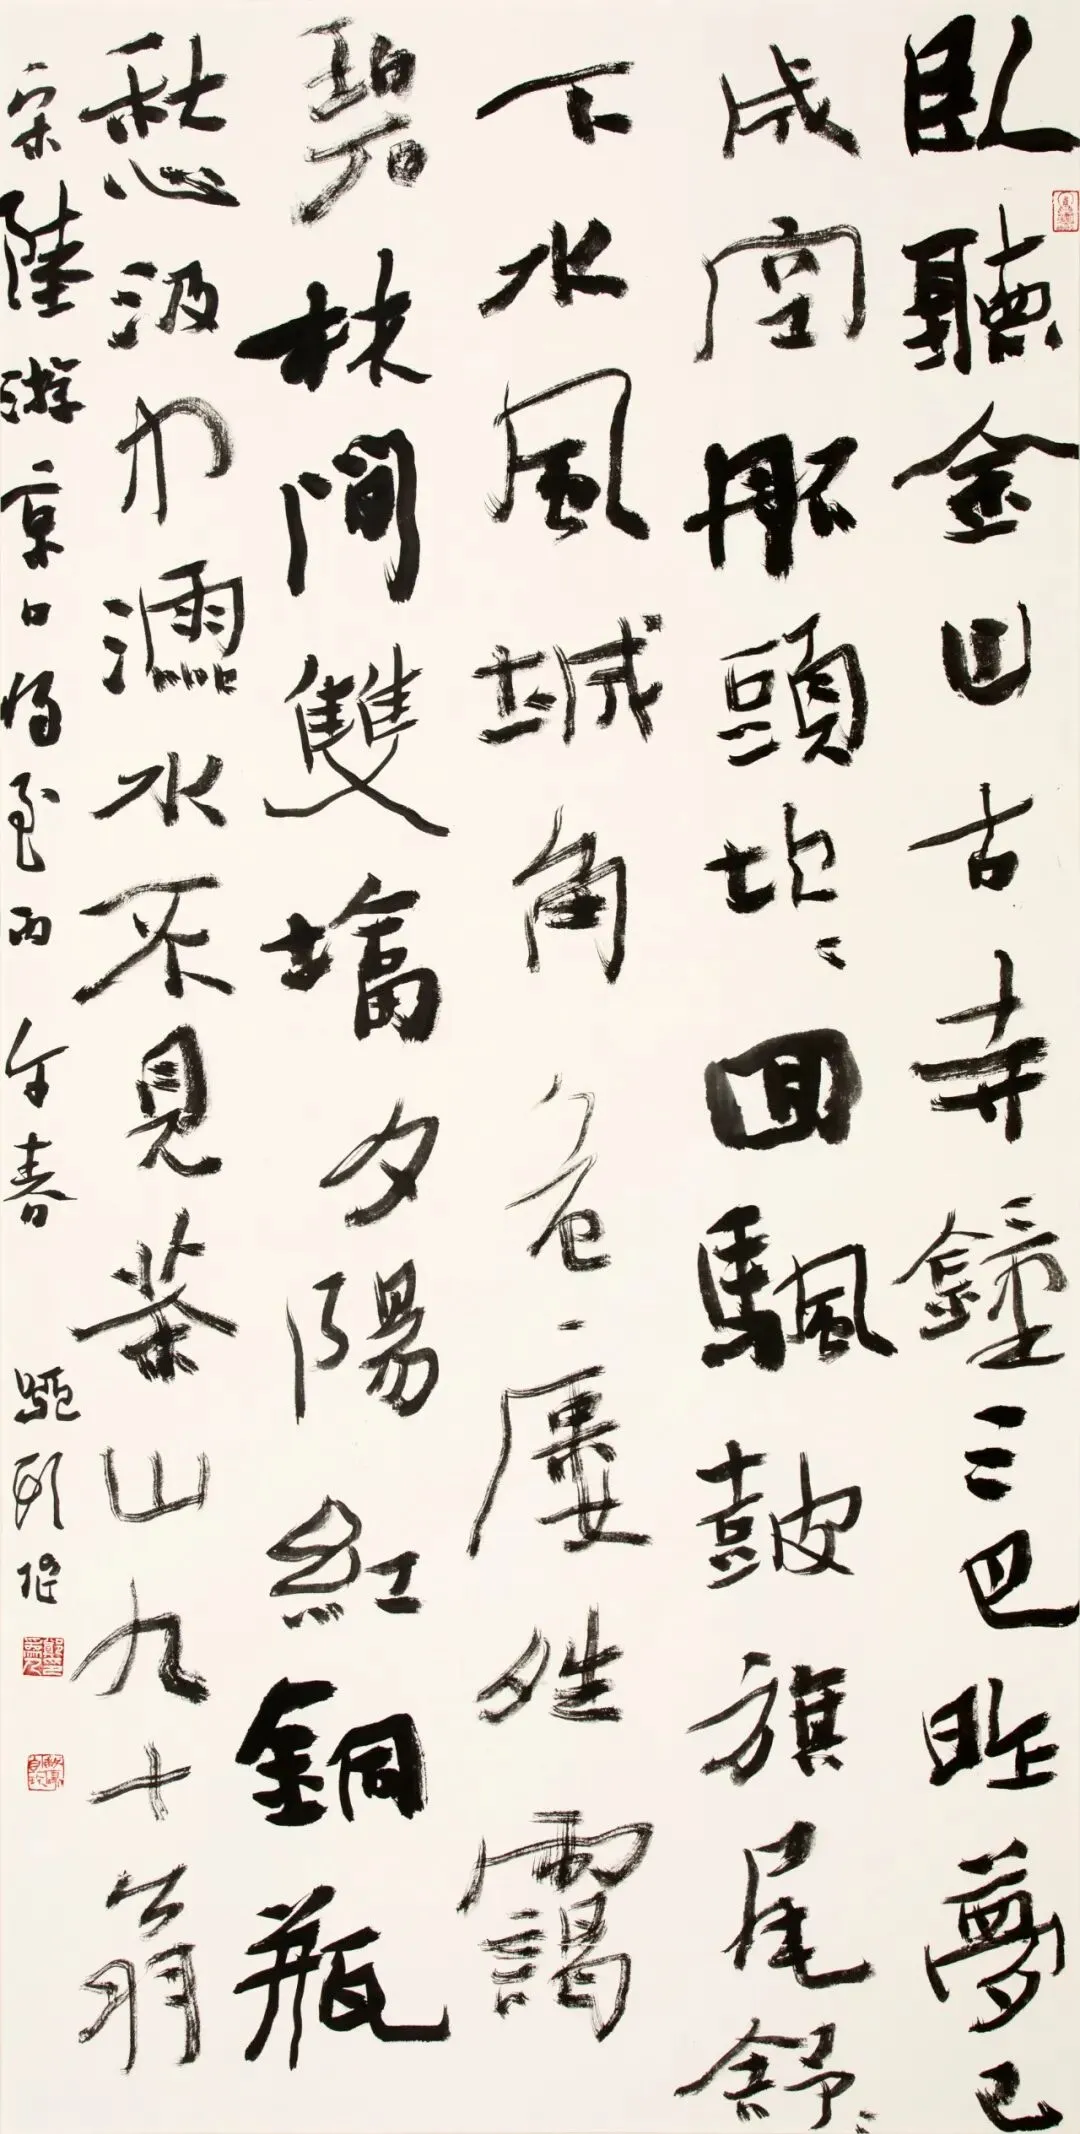 臥聽金山古寺鐘三巴昨夢已
成空船頭坎〻回颿鼓旗尾舒〻
下水風城角危廔夝靄
碧林間雙塔夕陽紅銅瓶
愁汲中濡水不見茶山九十翁
宋陸游京口將至丙午春